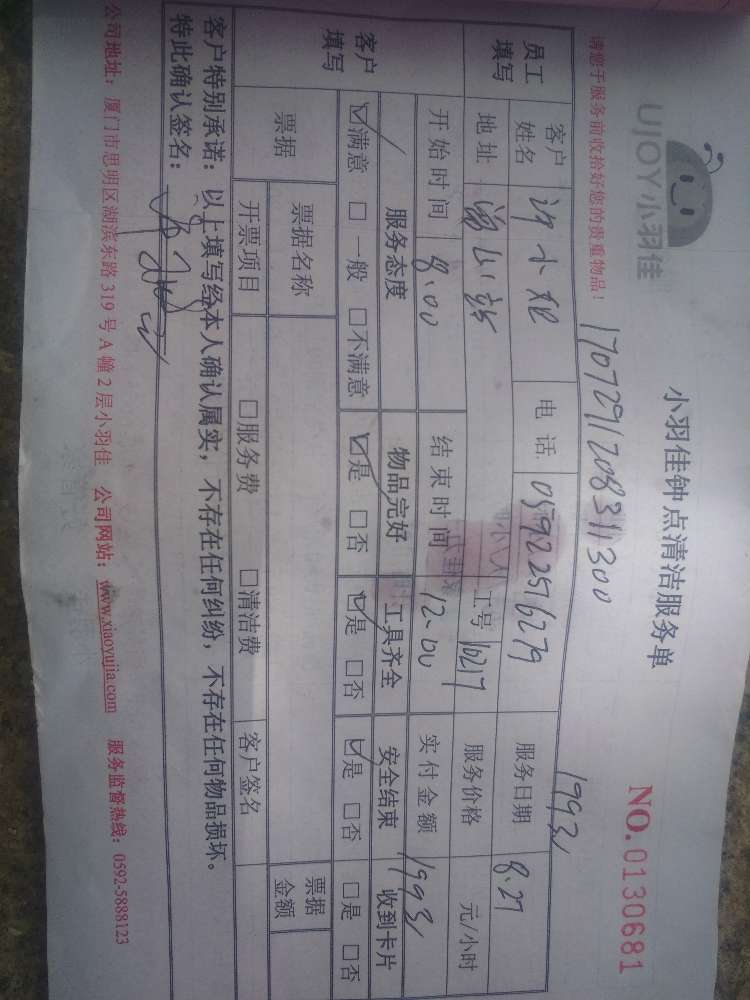 UJOY小羽佳
小羽佳钟点清洁服务单
NO.0130681
请您于服务前收拾好您的贵重物品！
17072911208311300
1993/
员工填写
客户姓名 许小妮 电话 05922516279 服务日期 8.27
地址 工号 10217 服务价格 元/小时
开始时间 8.00 结束时间 12-00 实付金额 1993/
客户填写
服务态度 物品完好 工具齐全 安全结束 收到卡片
☑满意 □一般 □不满意 ☑是 □否 ☑是 □否 ☑是 □否 □是 □否
票据 票据名称 票据金额
开票项目 □服务费 □清洁费 客户签名
客户特别承诺：以上填写经本人确认属实，不存在任何纠纷，不存在任何物品损坏。
特此确认签名：
公司地址：厦门市思明区湖滨东路319号A幢2层小羽佳 公司网站：www.xiaoyujia.com 服务监督热线：0592-5888123